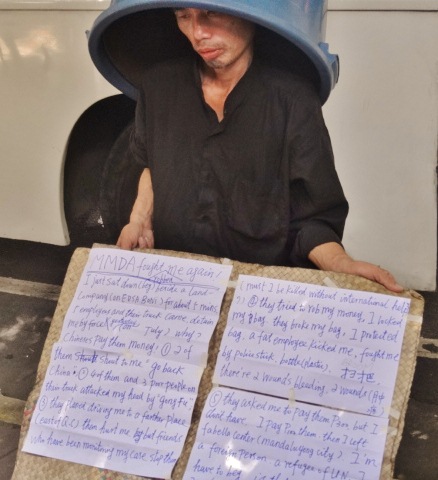 MMDA fought me again!
I just sat down beside a Land-
company (on EDSA Bus) for about 5 mins,
7 employees and then truck came,
me by force July) why?
Chinese pay them money, ① 2 of
them shout to me "go back
China" ② 4 of them and 3 poor people on
their truck attacked my head by "gungfu"
③ they planed drive me to a farther place
(east of Q.C) then hurt me, by but friends
who have been monitoring my care stop them
(must I be killed without international
) ④ they tried to rob my money, I locked
my bag. they broke my bag, I protected
bag, a fat employee kicked me, fought me
by police stick, bottle (plastic), 扫把,
there're 2 wounds bleeding, 2 wounds
⑤ they asked me to pay them P2m but I
don't have. I pay P2m them then I left
fabella center (mandaluyong city) I'm
a foreign person, a refugee of UN, I
have to beg